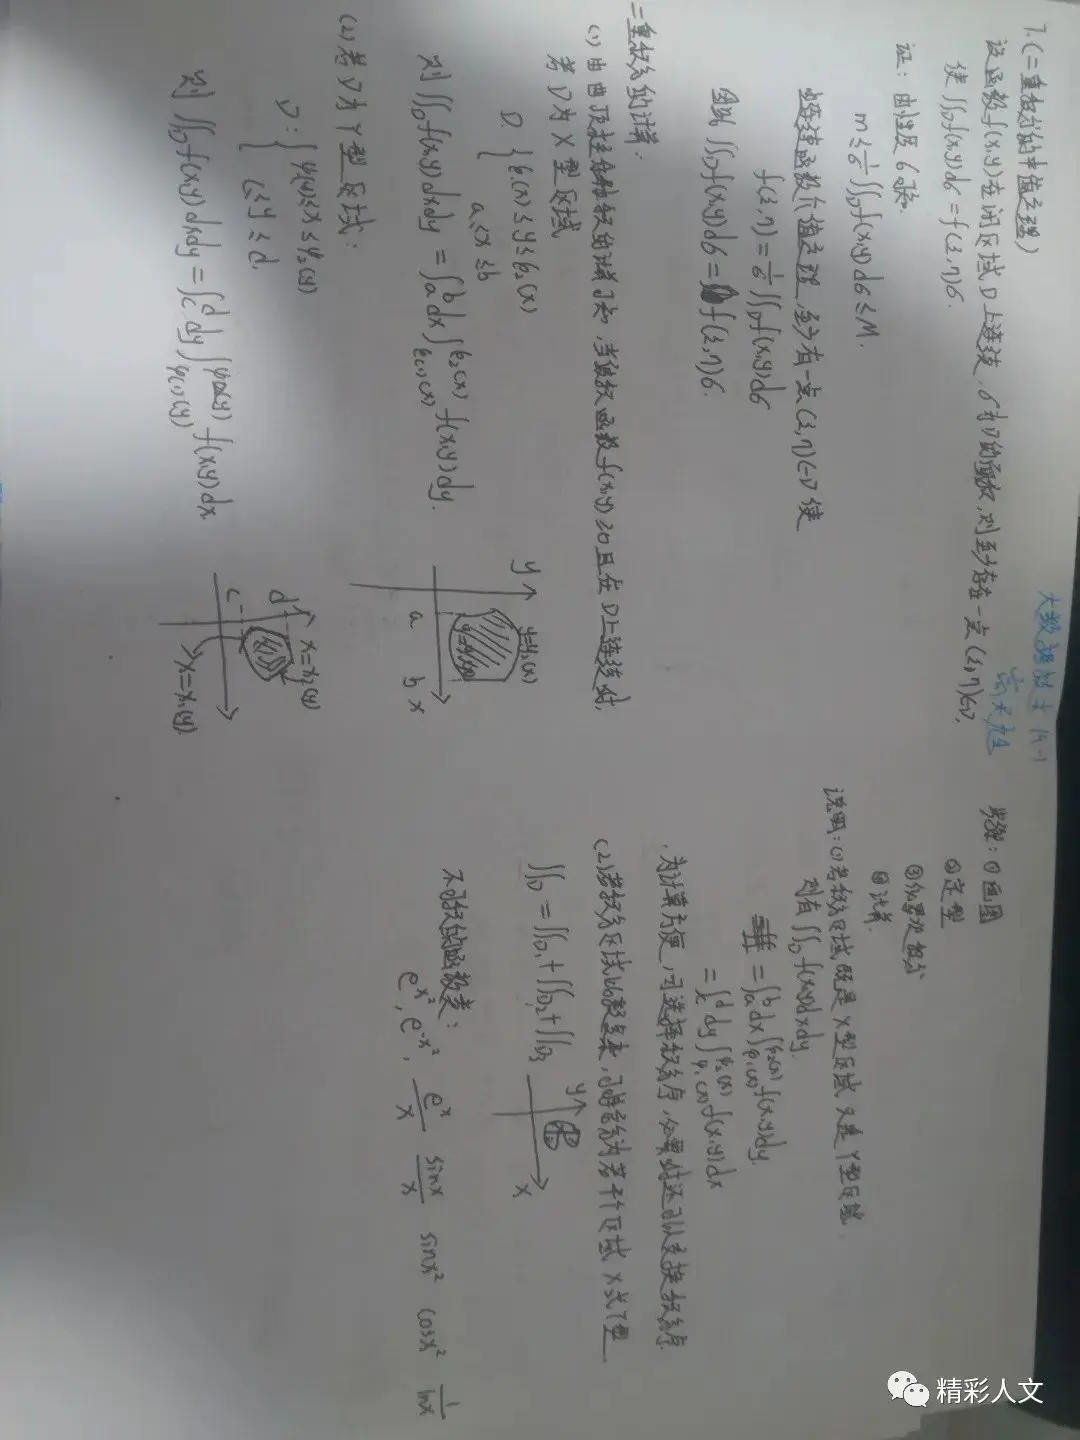 大数据技术19-1
7.(二重积分的中值定理)
设函数f(x,y)在闭区域D上连续,σ为D的面积,则至少存在一点(ξ,η)∈D,
使∬_D f(x,y)dσ=f(ξ,η)σ.
证:由性质6可知
m≤1/σ∬_D f(x,y)dσ≤M.
由连续函数介值定理,至少有一点(ξ,η)∈D使
f(ξ,η)=1/σ∬_D f(x,y)dσ
因此∬_D f(x,y)dσ=f(ξ,η)σ.
二重积分的计算:
(1)由曲顶柱体体积的计算可知,当被积函数f(x,y)≥0且在D上连续时,
若D为X型区域
D{φ₁(x)≤y≤φ₂(x)
a≤x≤b
则∬_D f(x,y)dxdy=∫_a^b dx∫_{φ₁(x)}^{φ₂(x)} f(x,y)dy.
y
y=φ₂(x)
a b x
(2)若D为Y型区域:
D:{ψ₁(y)≤x≤ψ₂(y)
c≤y≤d.
则∬_D f(x,y)dxdy=∫_c^d dy∫_{ψ₁(y)}^{ψ₂(y)} f(x,y)dx
d
x=x₂(y)
c
x=x₁(y)
步骤:①画图
②定型
③化累次积分
④计算.
说明:(1)若积分区域既是X型区域又是Y型区域.
则有∬_D f(x,y)dxdy.
=∫_a^b dx∫_{φ₁(x)}^{φ₂(x)} f(x,y)dy.
=∫_c^d dy∫_{ψ₁(x)}^{ψ₂(x)} f(x,y)dx
为计算方便,可选择积分序,必要时还可以交换积分序.
(2)若积分区域比较复杂,可将它分为若干个区域X或Y型
∬_D=∬_{D₁}+∬_{D₂}+∬_{D₃}
y
x
不可积的函数类:
e^{x²}, e^{-x²}, e^x/x sinx/x sinx² cosx² 1/lnx
精彩人文